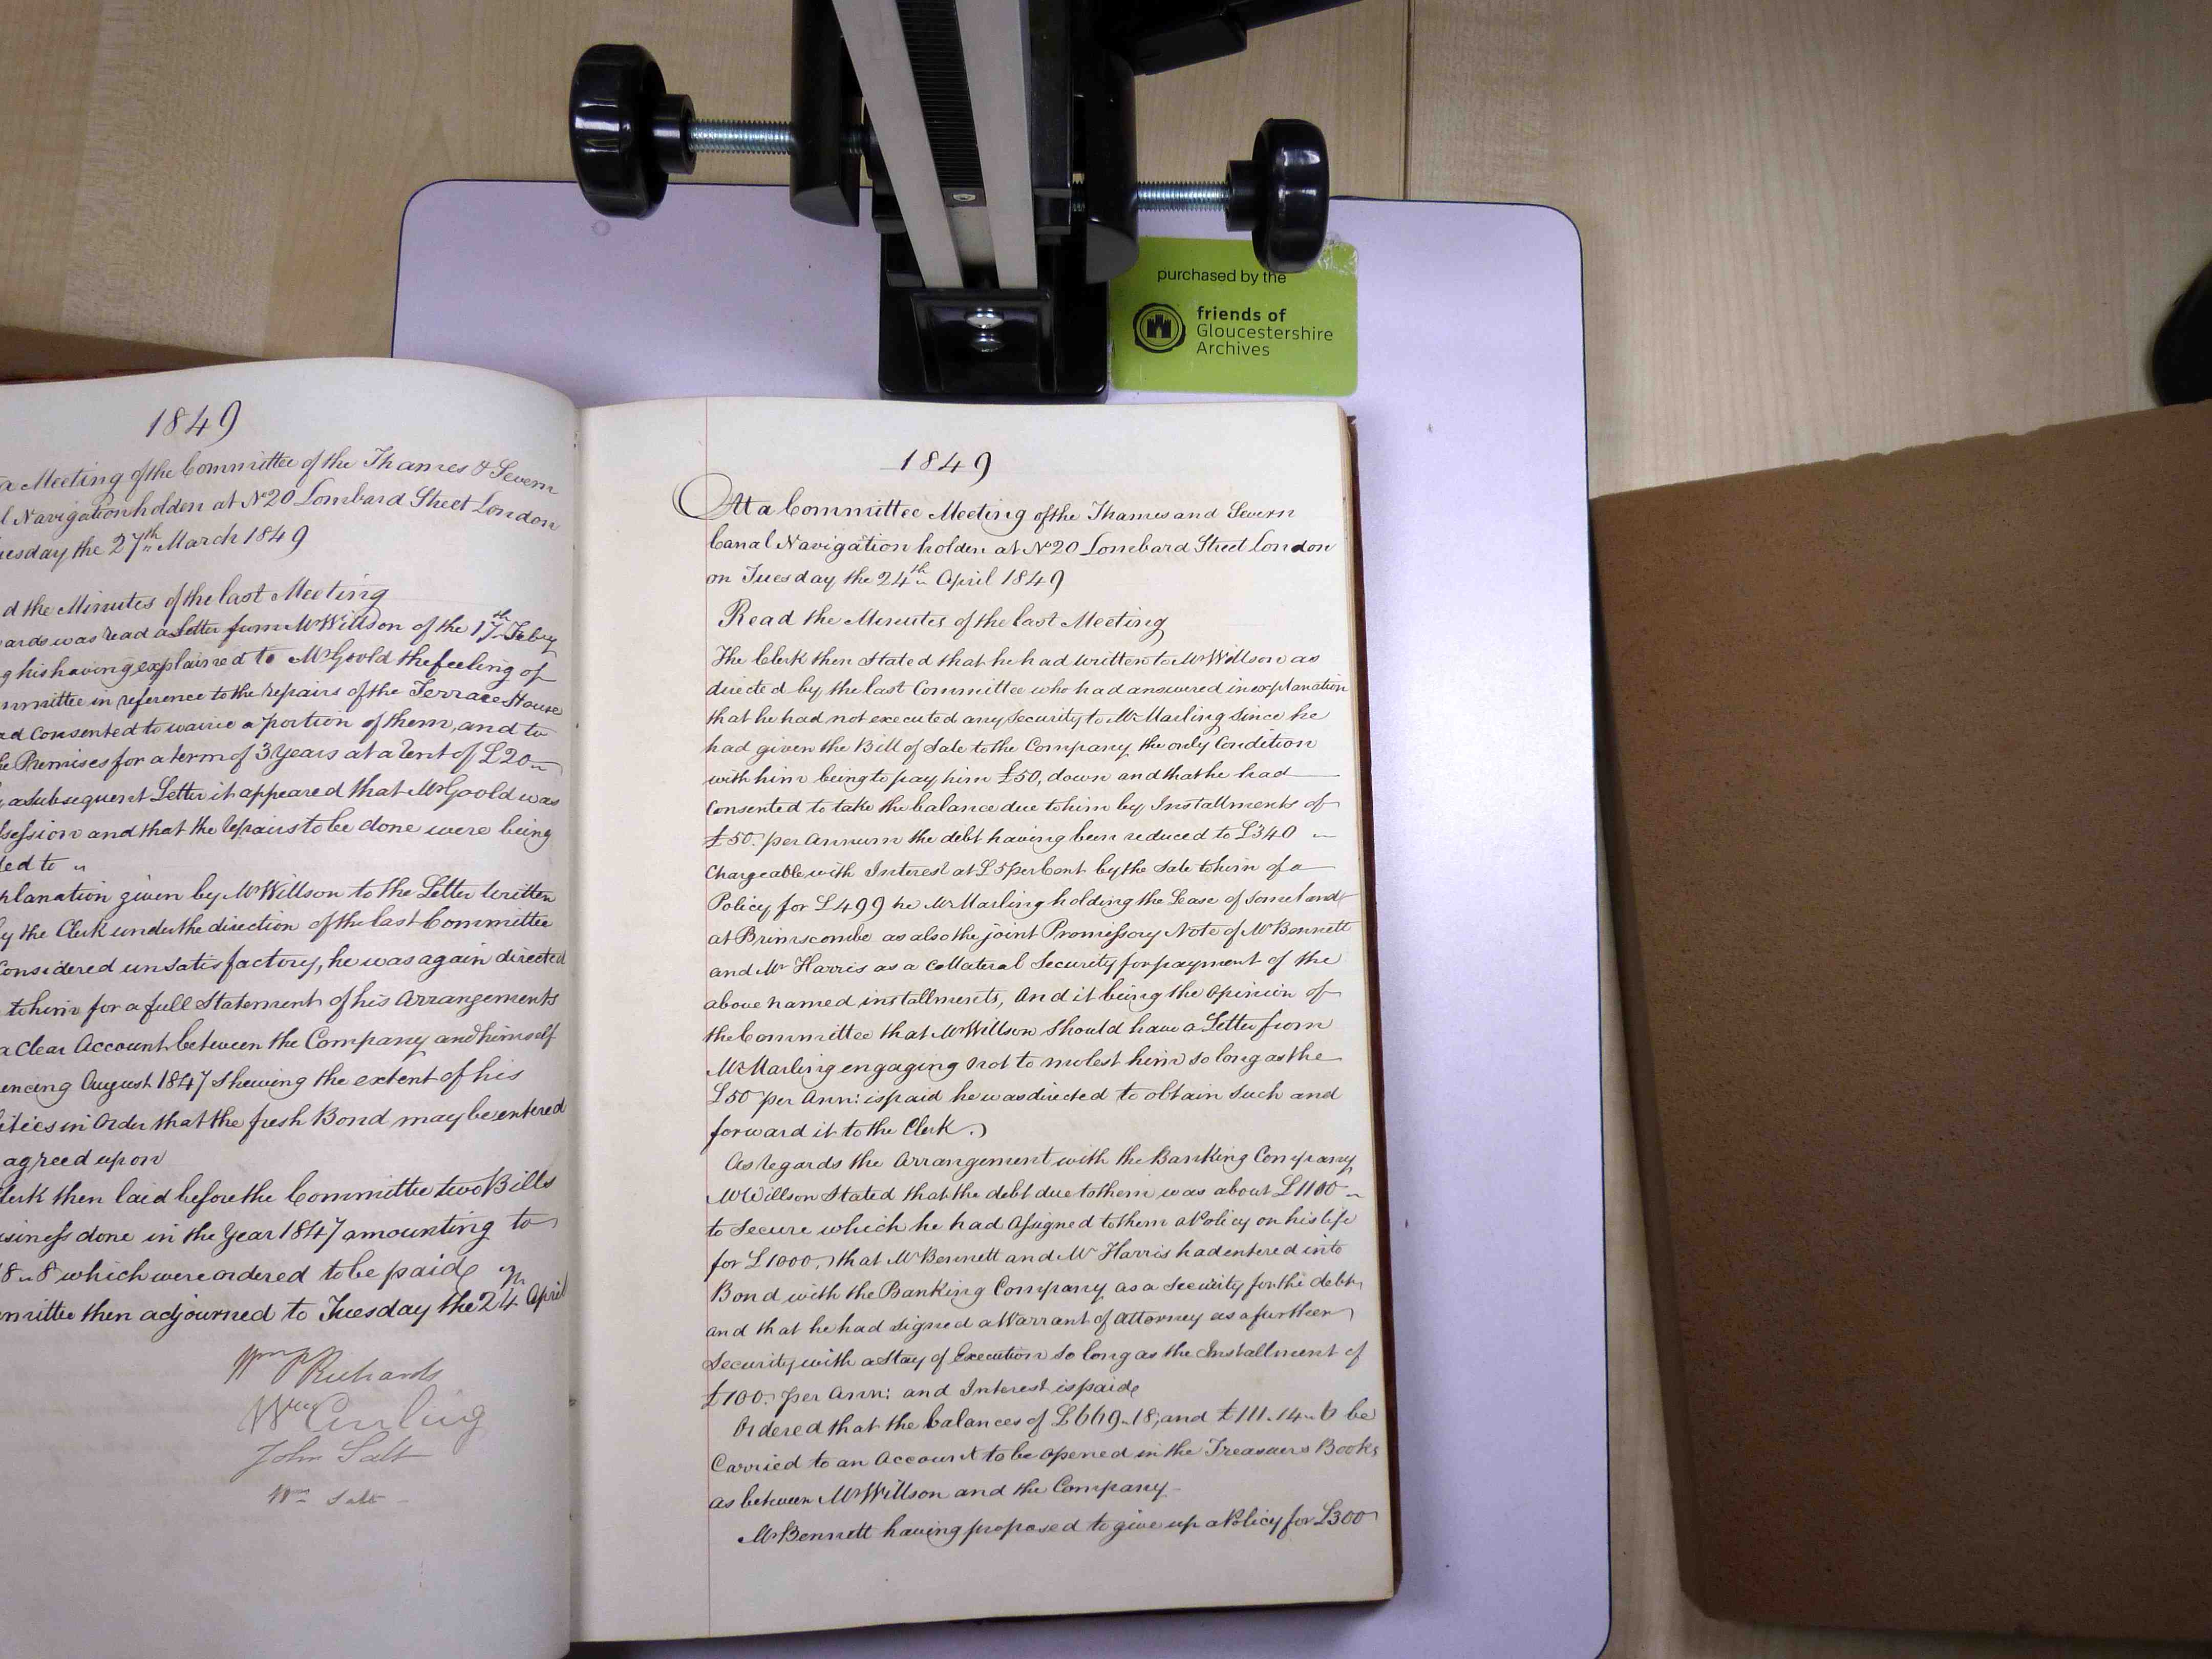 purchased by the
friends of
Gloucestershire
Archives
1849
a Meeting of the Committee of the Thames & Severn
l Navigation holden at No 20 Lombard Street London
uesday the 27th March 1849
d the Minutes of the last Meeting
ards was read a Letter from Mr Willson of the 17th Feby
g his having explained to Mr Goold the feeling of
mmittee in reference to the repairs of the Terrace House
ad Consented to waive a portion of them, and to
he Premises for a term of 3 Years at a Rent of £20
a subsequent Letter it appeared that Mr Goold was
ssession and that the repairs to be done were being
ded to
planation given by Mr Willson to the Letter written
y the Clerk under the direction of the last Committee
Considered unsatisfactory, he was again directed
to him for a full Statement of his Arrangements
a Clear Account between the Company and himself
encing August 1847 shewing the extent of his
ities in Order that the fresh Bond may be entered
agreed upon
lerk then laid before the Committee two Bills
usiness done in the Year 1847 amounting to
8 " 8 which were ordered to be paid
mmittee then adjourned to Tuesday the 24th April
Wm P Richards
Wm Curling
John Salt
Wm Salt
1849
At a Committee Meeting of the Thames and Severn
Canal Navigation holden at No 20 Lombard Street London
on Tuesday the 24th April 1849
Read the Minutes of the last Meeting
The Clerk then stated that he had written to Mr Willson as
directed by the last Committee who had answered in explanation
that he had not executed any security to Mr Marling since he
had given the Bill of Sale to the Company the only Condition
with him being to pay him £50, down and that he had
Consented to take the balance due to him by Installments of
£50. per Annum the debt having been reduced to £340
Chargeable with Interest at £5 per Cent by the Sale to him of a
Policy for £499 he Mr Marling holding the Lease of some land
at Brimscombe as also the joint Promissory Note of Mr Bennett
and Mr Harris as a Collateral Security for payment of the
above named installments, And it being the Opinion of
the Committee that Mr Willson should have a Letter from
Mr Marling engaging not to molest him so long as the
£50 per Ann: is paid he was directed to obtain such and
forward it to the Clerk.
As regards the Arrangement with the Banking Company
Mr Willson Stated that the debt due to them was about £1100
to Secure which he had Assigned to them a Policy on his life
for £1000, that Mr Bennett and Mr Harris had entered into
Bond with the Banking Company as a Security for the debt,
and that he had signed a Warrant of Attorney as a further
Security with a Stay of Execution so long as the Installment of
£100. per Ann: and Interest is paid
Ordered that the balances of £669.18, and £111.14.6 be
Carried to an Account to be opened in the Treasurers Books
as between Mr Willson and the Company
Mr Bennett having proposed to give up a Policy for £300